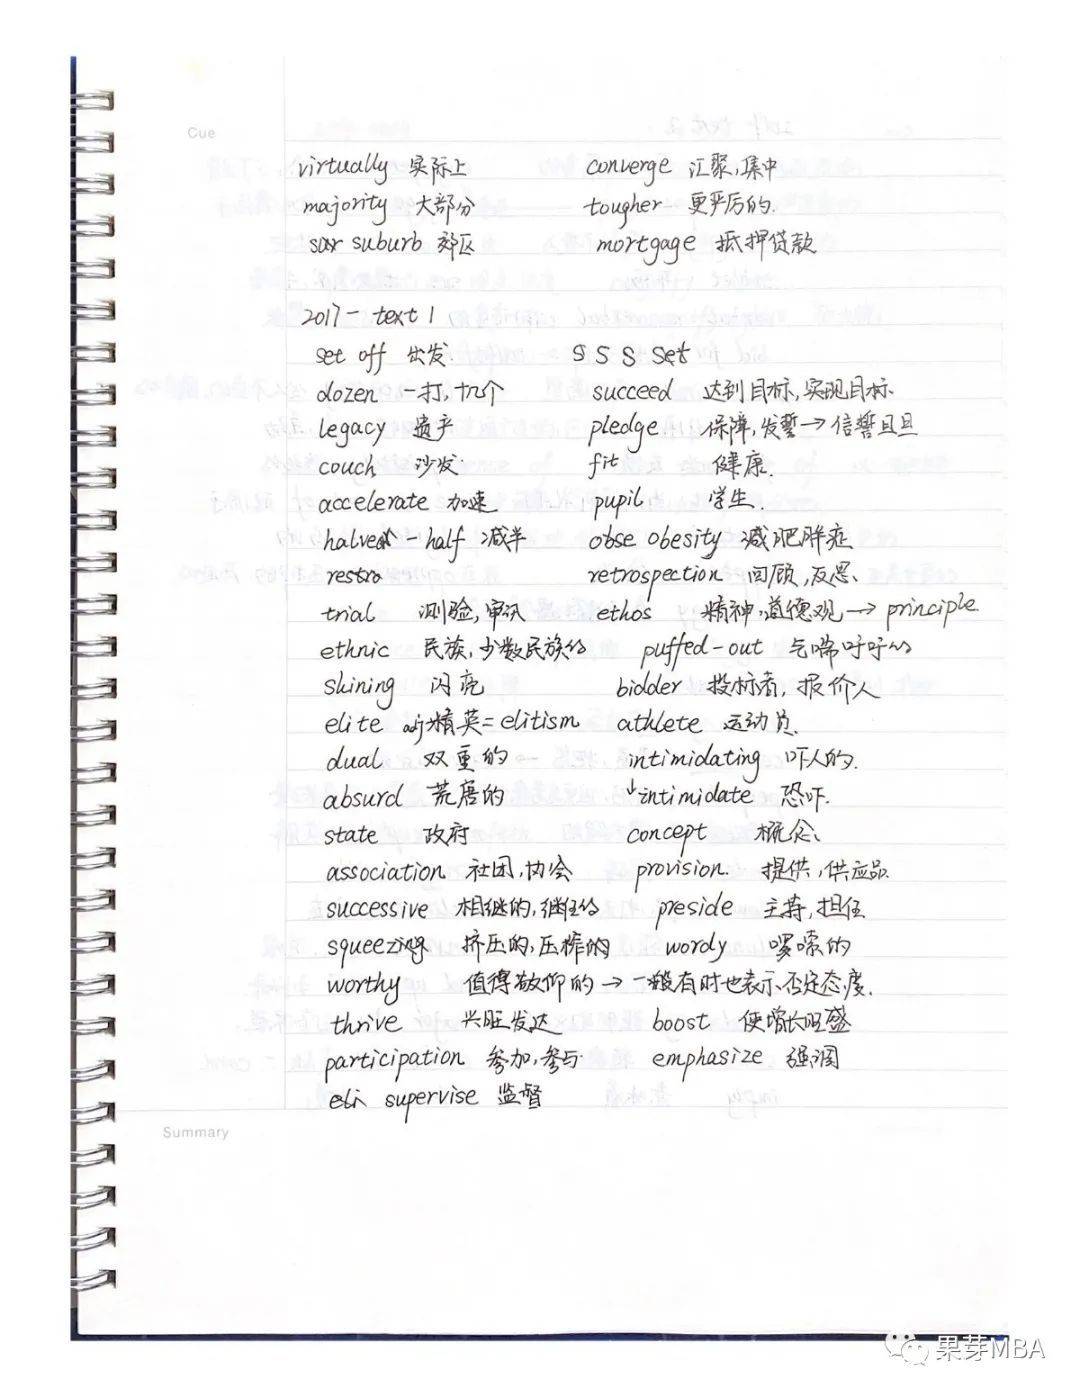 Cue
virtually 实际上 converge 汇聚,集中
majority 大部分 tougher 更严厉的.
suburb 郊区 mortgage 抵押贷款
2017- text 1
set off 出发. S S S Set
dozen 一打,十几个 succeed 达到目标,实现目标.
legacy 遗产 pledge 保障,发誓→信誓旦旦
couch 沙发. fit 健康.
accelerate 加速 pupil 学生.
halve - half 减半 obse obesity 减肥胖症
restro retrospection 回顾,反思.
trial 测验,审讯 ethos 精神,道德观 → principle
ethnic 民族,少数民族的 puffed-out 气喘吁吁的
shining 闪亮 bidder 投标者,报价人
elite adj精英=elitism athlete 运动员.
dual 双重的 intimidating 吓人的.
absurd 荒唐的 ↓intimidate 恐吓.
state 政府 concept 概念.
association 社团,协会 provision. 提供,供应品.
successive 相继的,继任的 preside 主持,担任
squeezing 挤压的,压榨的 wordy 啰嗦的
worthy 值得敬仰的→一般有时也表示否定态度.
thrive 兴旺发达 boost 使增长旺盛
participation 参加,参与. emphasize 强调
eli supervise 监督
Summary
果芽MBA